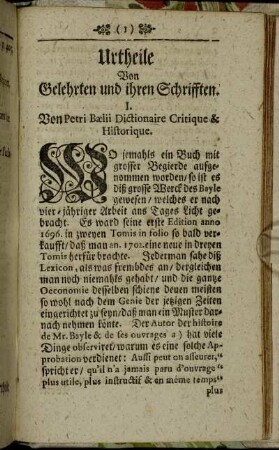 (1)
Urtheile
Von
Gelehrten und ihren Schrifften.
I.
Von Petri Bælii Dictionaire Critique &
Historique.
WO jemahls ein Buch mit
grosser Begierde aufge-
nommen worden/ so ist es
diß grosse Werck des Bayle
gewesen/ welches er nach
vier-jähriger Arbeit ans Tages Licht ge-
bracht. Es ward seine erste Edition anno
1696. in zweyen Tomis in folio so bald ver-
kaufft/ daß man an. 1702. eine neue in dreyen
Tomis herfür brachte. Jederman sahe diß
Lexicon, als was frembdes an/ dergleichen
man noch niemahls gehabt/ und die gantze
Oeconomie desselben schiene denen meisten
so wohl nach dem Genie der jetzigen Zeiten
eingerichtet zu seyn/ daß man ein Muster dar-
nach nehmen könte. Der Autor der histoire
de Mr. Bayle & de ses ouvrages a) hat viele
Dinge observiret/ warum es eine solche Ap-
probation verdienet: Aussi peut on assurer,"
spricht er/ qu'il n'a jamais paru d'ouvrage"
plus utile, plus instructif & en même temps"
plus